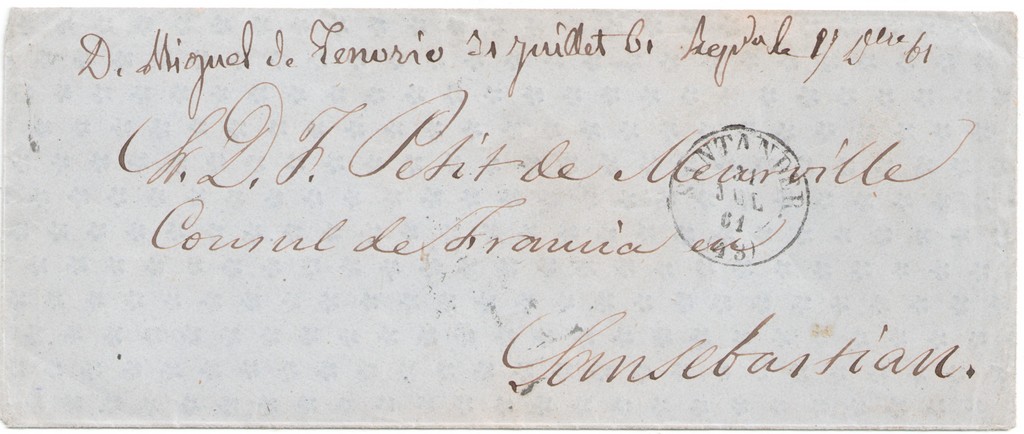 D. Miguel de Tenorio 21 juillet 61 Repda le 17 Dbre 61
Sr. D. F. Petit de Meurville
Consul de Francia en
Sansebastian.
SANTANDER
21
JUL
61
(43)